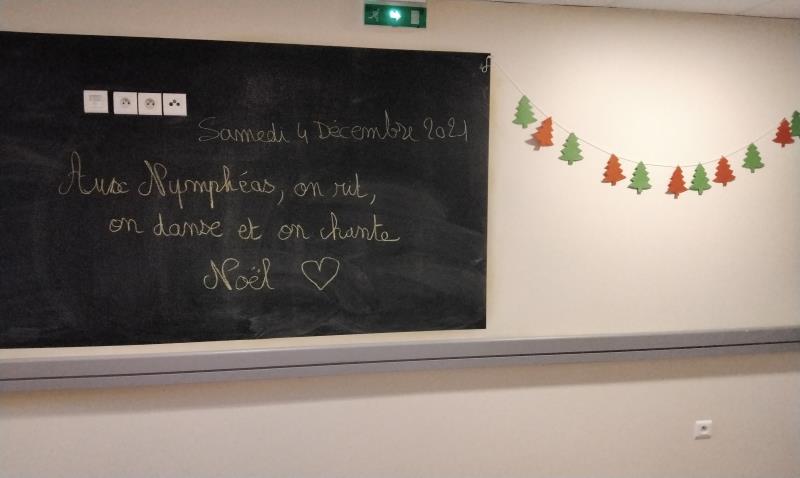 Samedi 4 Décembre 2021
Aux Nymphéas, on rit,
on danse et on chante
Noël ♡